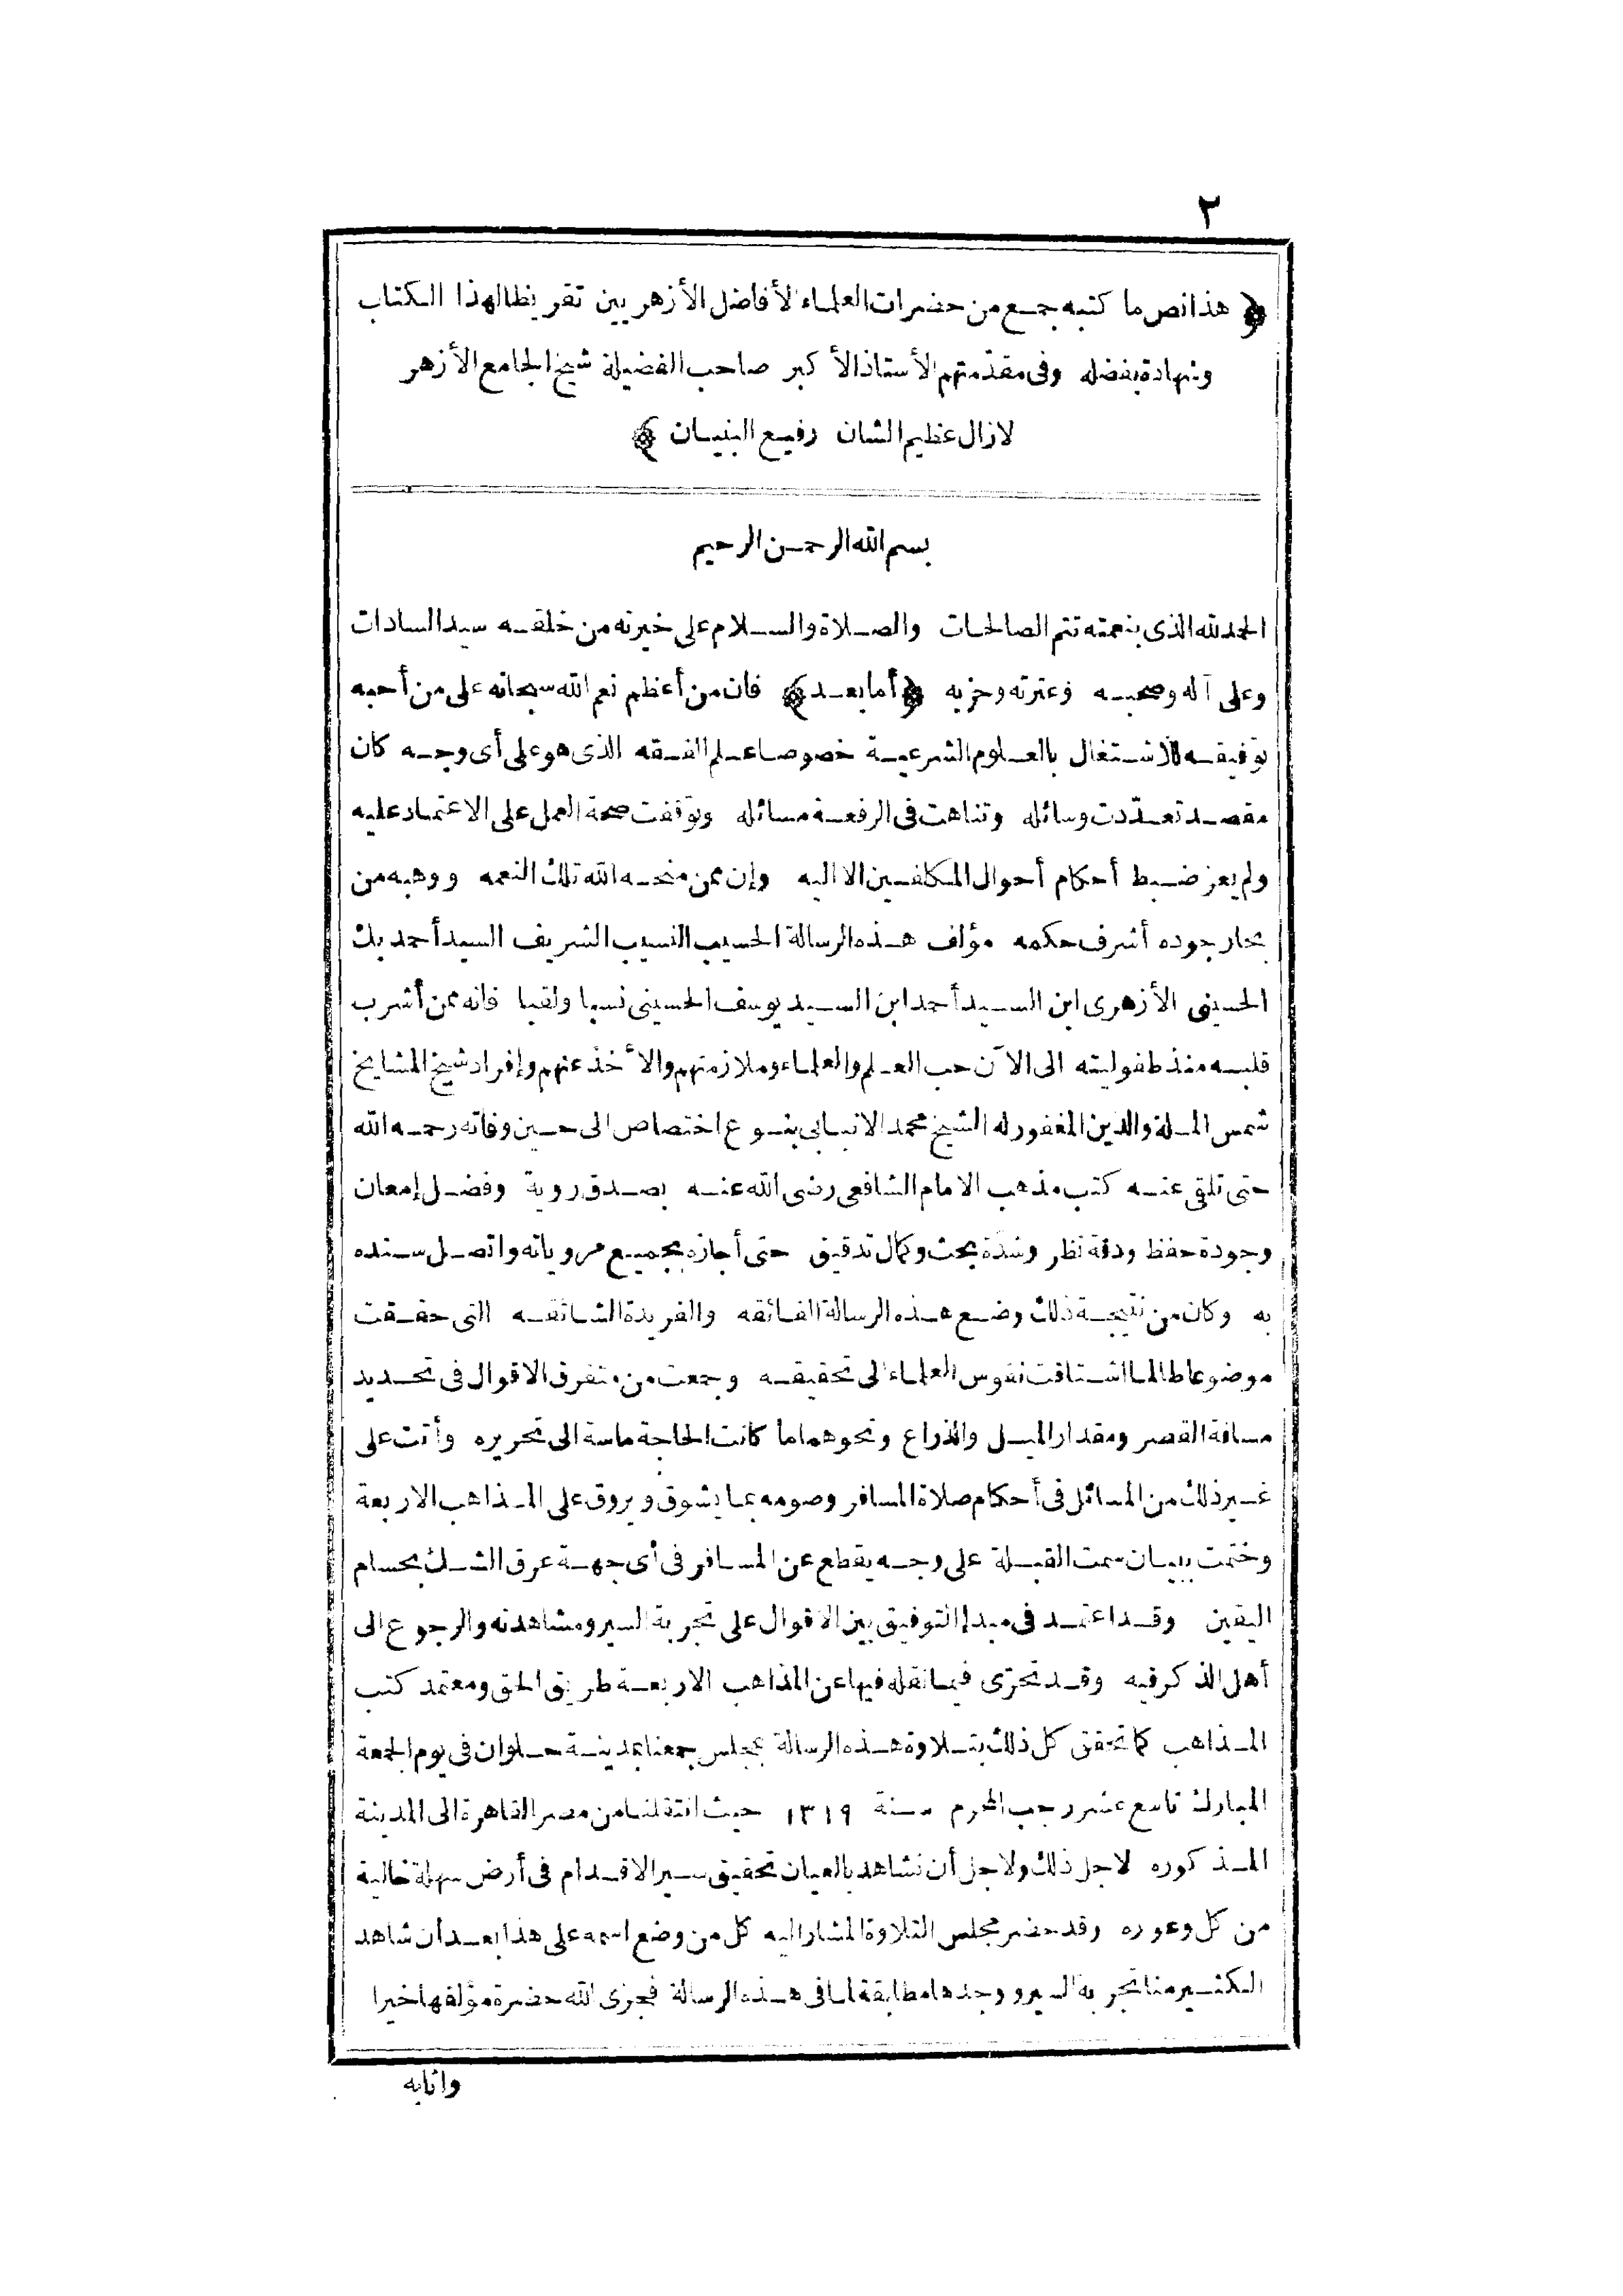 ٢
﴿ هذا نص ما كتبه جمع من حضرات العلماء الأفاضل الأزهريين تقريظا لهذا الكتاب
وشهادة بفضله وفى مقدّمتهم الأستاذ الأكبر صاحب الفضيلة شيخ الجامع الأزهر
لازال عظيم الشان رفيع البنيان ﴾
بسم الله الرحمن الرحيم
الحمد لله الذى بنعمته تتم الصالحات والصلاة والسلام على خيرته من خلقه سيد السادات
وعلى آله وصحبه وعترته وحزبه ﴿أما بعد﴾ فان من أعظم نعم الله سبحانه على من أحبه
توفيقه للاشتغال بالعلوم الشرعية خصوصا علم الفقه الذى هو على أى وجه كان
مقصد تعدّدت وسائله وتناهت فى الرفعة مسائله وتوقفت صحة العمل على الاعتماد عليه
ولم يعز ضبط أحكام أحوال المكلفين الا اليه وإن ممن منحه الله تلك النعمه ووهبه من
بحار جوده أشرف حكمه مؤلف هذه الرسالة الحسيب النسيب الشريف السيد أحمد بك
الحسينى الأزهرى ابن السيد أحمد ابن السيد يوسف الحسينى نسبا ولقبا فانه ممن أشرب
قلبه منذ طفوليته الى الآن حب العلم والعلماء وملازمتهم والأخذ عنهم وإفراد شيخ المشايخ
شمس الملة والدين المغفور له الشيخ محمد الانبابى بنوع اختصاص الى حين وفاته رحمه الله
حتى تلقى عنه كتب مذهب الامام الشافعى رضى الله عنه بصدق روية وفضل إمعان
وجودة حفظ ودقة نظر وشدّة بحث وكمال تدقيق حتى أجازه بجميع مروياته واتصل سنده
به وكان من نتيجة ذلك وضع هذه الرسالة الفائقه والفريدة الشائقه التى حققت
موضوعا طالما اشتاقت نفوس العلماء الى تحقيقه وجمعت من متفرق الاقوال فى تحديد
مسافة القصر ومقدار الميل والذراع ونحوهما ما كانت الحاجة ماسة الى تحريره وأتت على
غير ذلك من المسائل فى أحكام صلاة المسافر وصومه بما يشوق ويروق على المذاهب الاربعة
وختمت ببيان سمت القبلة على وجه يقطع عن المسافر فى أى جهة عرق الشك بحسام
اليقين وقد اعتمد فى مبدإ التوفيق بين الاقوال على تجربة السير ومشاهدته والرجوع الى
أهل الذكر فيه وقد تحرّى فيما نقله فيها عن المذاهب الاربعة طريق الحق ومعتمد كتب
المذاهب كما تحقق كل ذلك بتلاوة هذه الرسالة بمجلس جمعنا بمدينة حلوان فى يوم الجمعة
المبارك تاسع عشر رجب المحرم سنة ١٣١٩ حيث انتقلنا من مصر القاهرة الى المدينة
المذكوره لاجل ذلك ولاجل أن نشاهد بالعيان تحقيق سير الاقدام فى أرض سهلة خالية
من كل وعوره وقد حضر مجلس التلاوة المشار اليه كل من وضع اسمه على هذا بعد أن شاهد
الكثير منا تجربة السير ووجدها مطابقة لما فى هذه الرسالة فجزى الله حضرة مؤلفها خيرا
واثابه